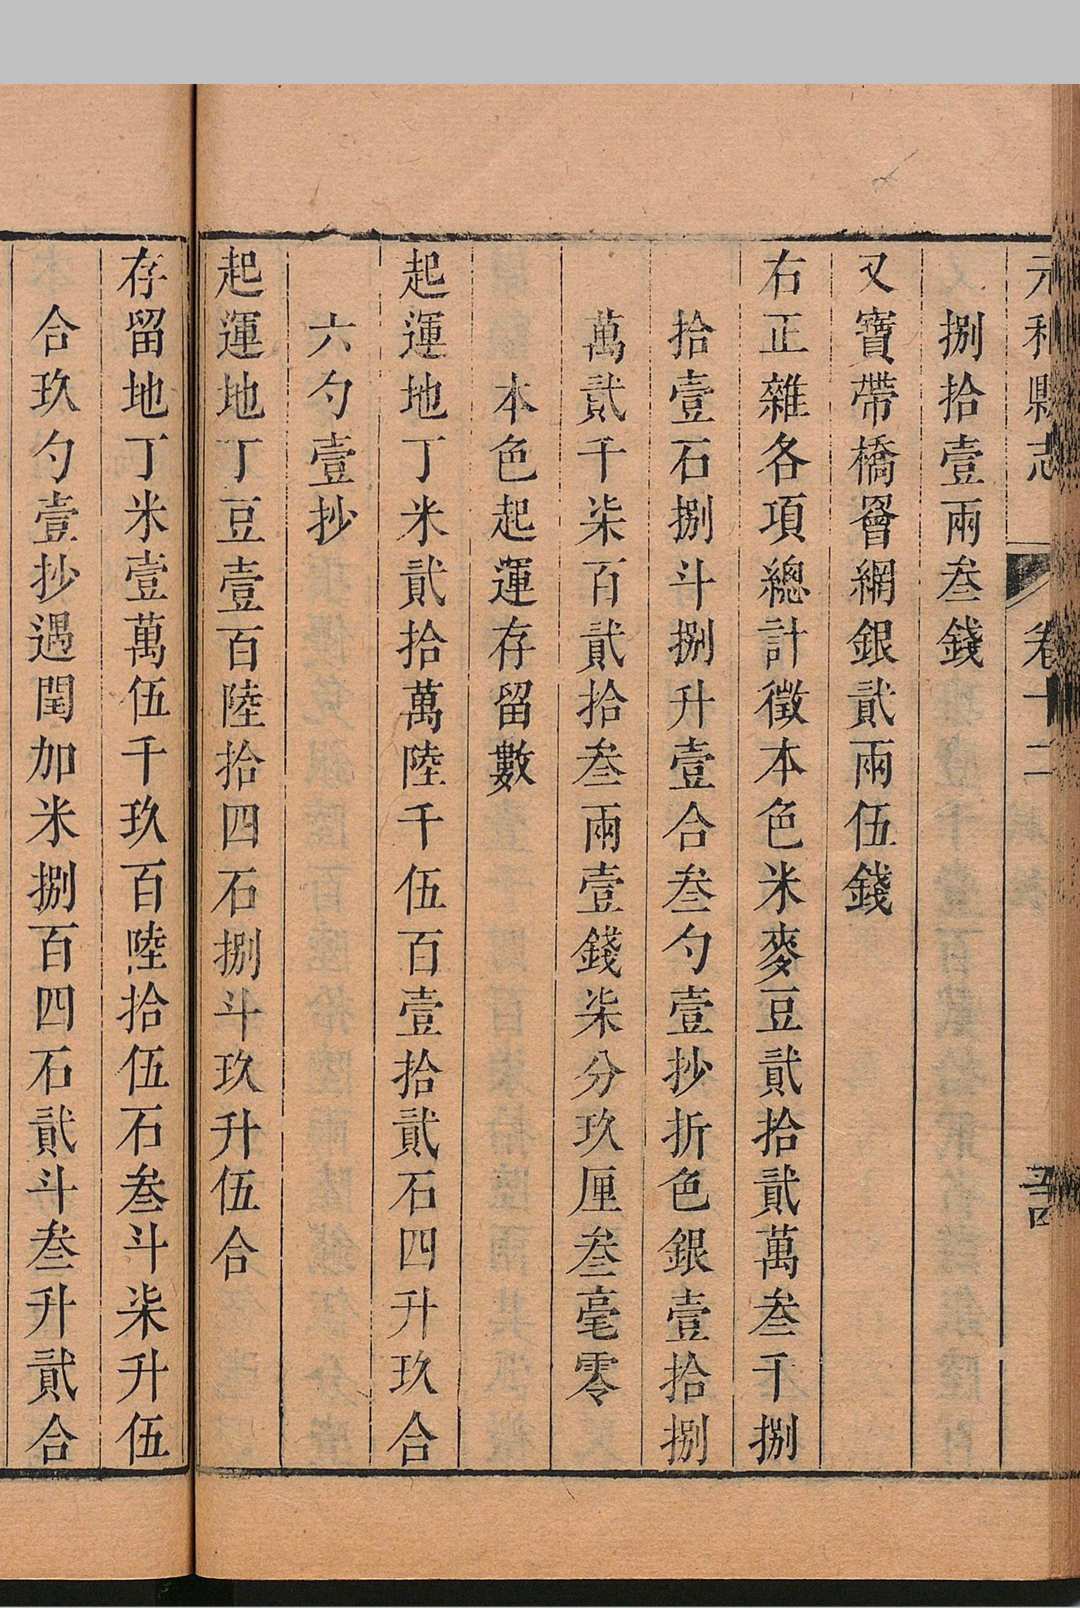 元和縣志 卷十二
捌拾壹兩叁錢
又寶帶橋罾網銀貳兩伍錢
右正雜各項總計徵本色米麥豆貳拾貳萬叁千捌
拾壹石捌斗捌升壹合叁勺壹抄折色銀壹拾捌
萬貳千柒百貳拾叁兩壹錢柒分玖厘叁毫零
本色起運存留數
起運地丁米貳拾萬陸千伍百壹拾貳石四升玖合
六勺壹抄
起運地丁豆壹百陸拾四石捌斗玖升伍合
存留地丁米壹萬伍千玖百陸拾伍石叁斗柒升伍
合玖勺壹抄遇閏加米捌百四石貳斗叁升貳合